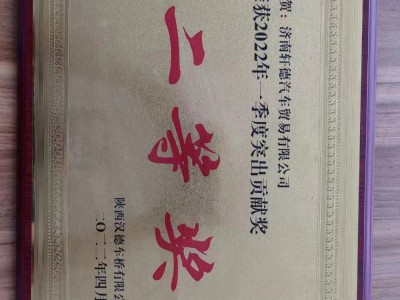 贺：济南轩德汽车贸易有限公司
获2022年一季度突出贡献奖
二等奖
陕西汉德车桥有限公
二〇二二年四月